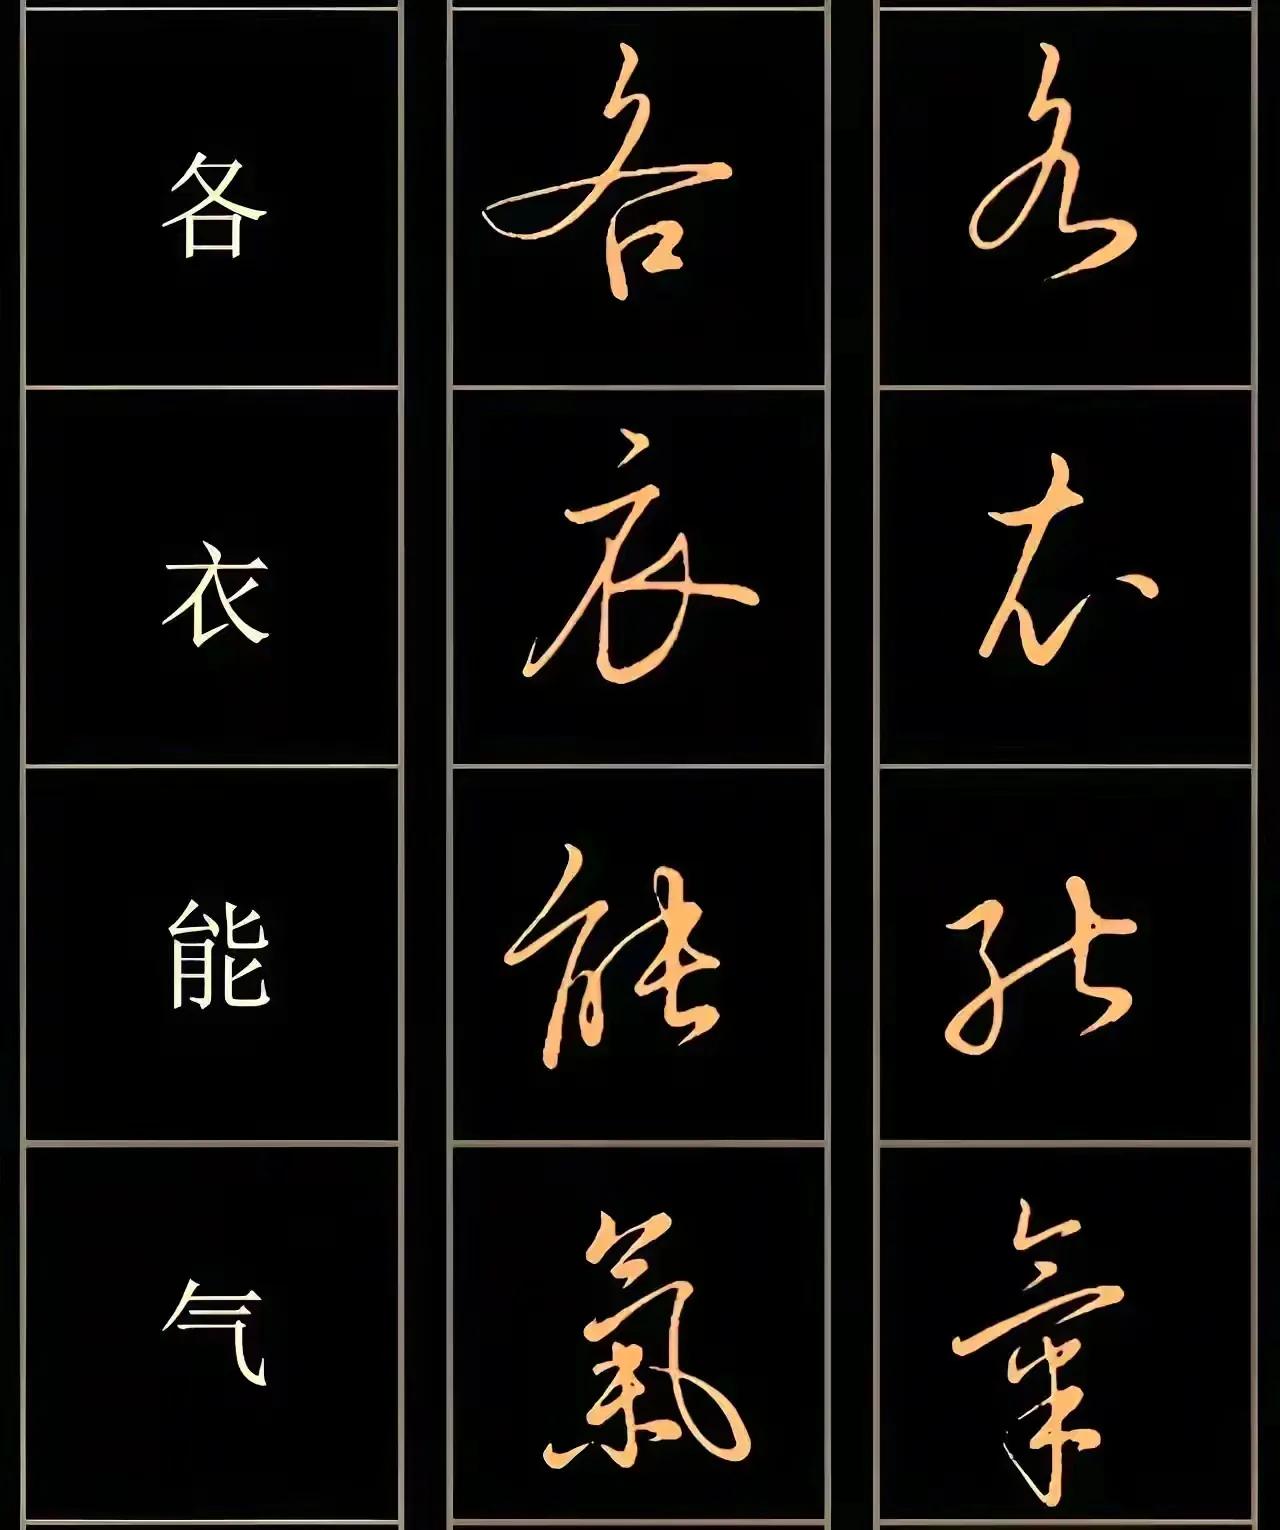 各 各 各
衣 衣 衣
能 能 能
气 氣 氣